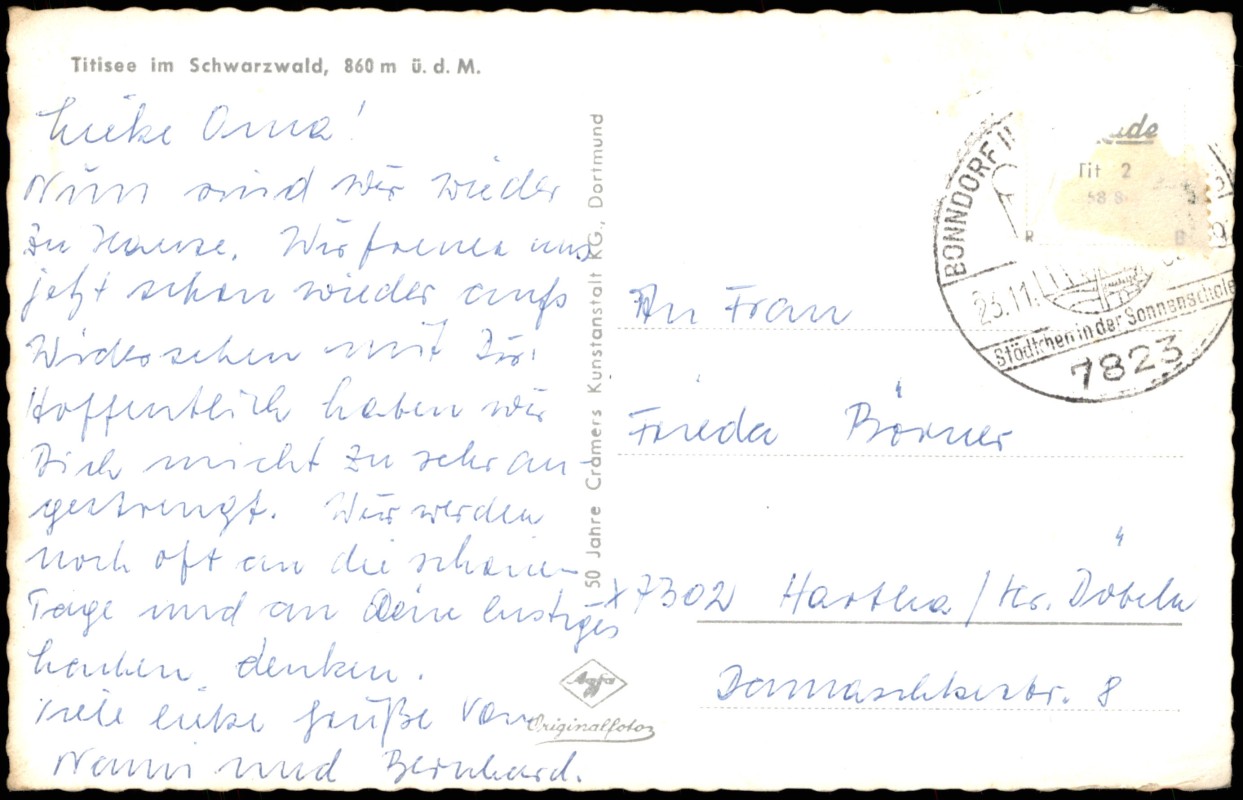 Titisee im Schwarzwald, 860 m ü. d. M.
Liebe Oma!
Nun sind wir wieder
zu Hause. Wir freuen uns
jetzt schon wieder aufs
Wiedersehen mit Dir.
Hoffentlich haben wir
Dich nicht zu sehr an-
gestrengt. Wir werden
noch oft an die schönen
Tage und an Dein lustiges
Lachen denken.
Viele liebe Grüße von
Nanni und Bernhard.
50 Jahre Cramers Kunstanstalt KG., Dortmund
Agfa
Originalfoto
BONNDORF I
23.11.
Städtchen in der Sonnenschale
7823
Tit 2
58 8
R
B
An Frau
Frieda Börner
X 7302 Hartha / Kr. Döbeln
Damaschkestr. 8